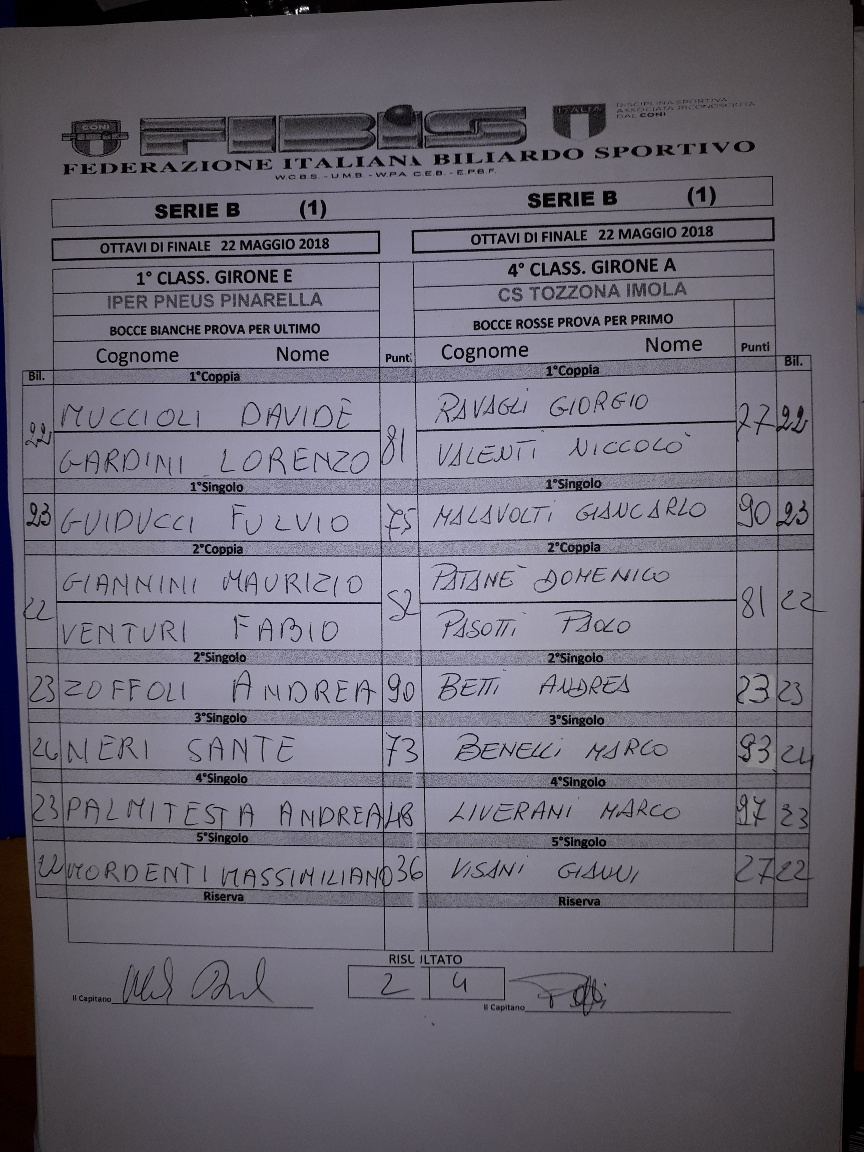 CONI FIBiS ITALIA DISCIPLINA SPORTIVA
ASSOCIATA RICONOSCIUTA
DAL CONI
FEDERAZIONE ITALIANA BILIARDO SPORTIVO
W.C.B.S. - U.M.B. - W.P.A C.E.B. - E.P.B.F.
SERIE B (1) SERIE B (1)
OTTAVI DI FINALE 22 MAGGIO 2018 OTTAVI DI FINALE 22 MAGGIO 2018
1° CLASS. GIRONE E 4° CLASS. GIRONE A
IPER PNEUS PINARELLA CS TOZZONA IMOLA
BOCCE BIANCHE PROVA PER ULTIMO BOCCE ROSSE PROVA PER PRIMO
Cognome Nome Punt. Cognome Nome Punti
Bil. 1°Coppia 1°Coppia Bil.
22 MUCCIOLI DAVIDE 81 RAVAGLI GIORGIO 77 22
GARDINI LORENZO VALENTI NICCOLO'
1°Singolo 1°Singolo
23 GUIDUCCI FULVIO 75 MALAVOLTI GIANCARLO 90 23
2°Coppia 2°Coppia
22 GIANNINI MAURIZIO 52 PATANE' DOMENICO 81 22
VENTURI FABIO PASOTTI PAOLO
2°Singolo 2°Singolo
23 ZOFFOLI ANDREA 90 BETTI ANDREA 23 23
3°Singolo 3°Singolo
24 NERI SANTE 73 BENELLI MARCO 93 24
4°Singolo 4°Singolo
23 PALMITESTA ANDREA 48 LIVERANI MARCO 97 23
5°Singolo 5°Singolo
22 MORDENTI MASSIMILIANO 36 VISANI GIANNI 27 22
Riserva Riserva
RISULTATO
2 4
Il Capitano Il Capitano